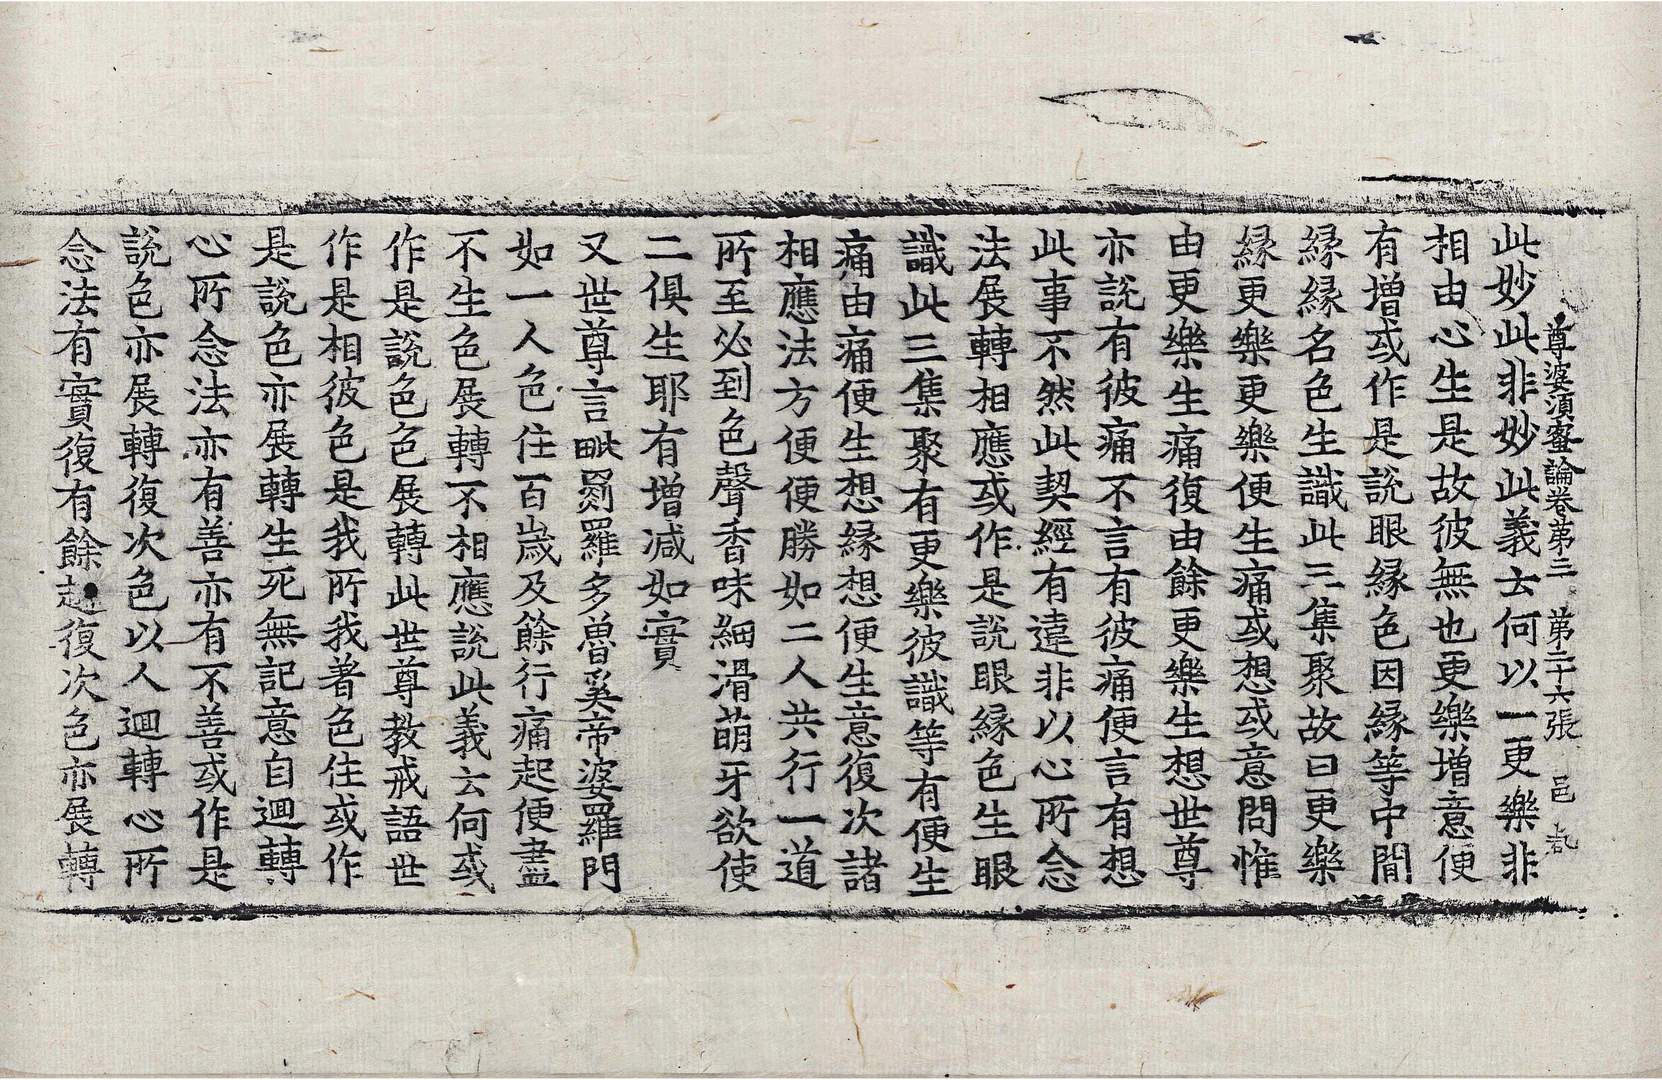 尊婆湏蜜論卷第三 第三十六張 邑
此妙此非妙此義云何以一更樂非
相由心生是故彼無也更樂增意便
有增或作是說眼緣色因緣等中間
緣緣名色生識此三集聚故曰更樂
緣更樂更樂便生痛或想或意問惟
由更樂生痛復由餘更樂生想世尊
亦說有彼痛不言有彼痛便言有想
此事不然此契經有違非以心所念
法展轉相應或作是說眼緣色生眼
識此三集聚有更樂彼識等有便生
痛由痛便生想緣想便生意復次諸
相應法方便便勝如二人共行一道
所至必到色聲香味細滑萌牙欲使
二俱生耶有增减如實
又世尊言毗羅多魯奚帝婆羅門
如一人色住百歲及餘行痛起便盡
不生色展轉不相應說此義云何或
作是說色色展轉此世尊教戒語世
作是相彼色是我所我著色住或作
是說色亦展轉生死無記意自迴轉
心所念法亦有善亦有不善或作是
說色亦展轉復次色以人迴轉心所
念法有實復有餘起復次色亦展轉